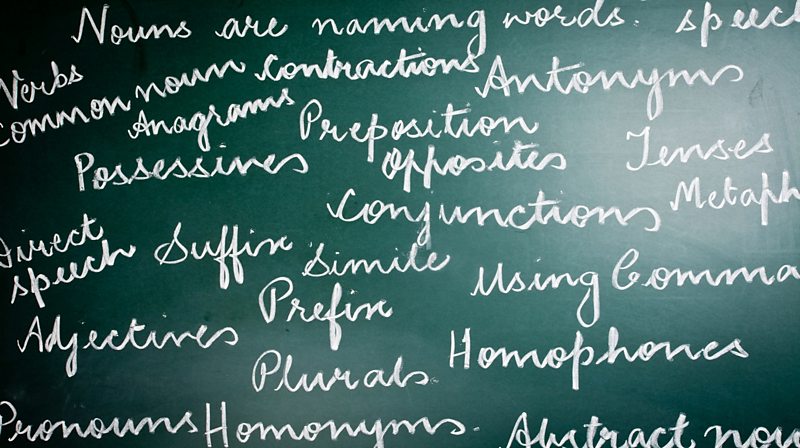 Nouns are naming words. speech
Verbs
common noun contractions Antonyms
Anagrams Preposition
Possessives opposites Tenses
conjunctions Metaph
Direct
speech Suffix Simile Using Comma
Prefix
Adjectives Homophones
Plurals
Pronouns Homonyms. Abstract nou